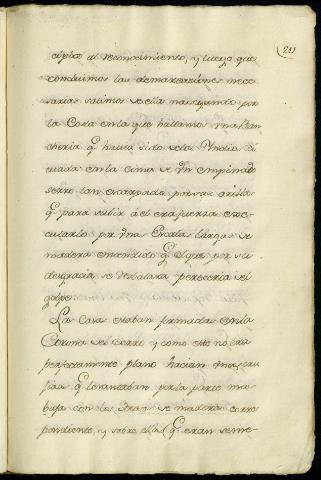 211
dipho al reconocimiento, y luego que
concluimos las demarcaciones nece-
sarias salimos de ella navegando por
la Costa en la que hallamos una Ran
cheria q.e havia sido de los Yndios si
tuada en la cima de un empinado
serro tan escarpado por sus orillas
q.e para subir á el era fuerza exe-
cutarlo por una Escala larga de
madera entendido q.e el que por su
desgracia se resbalara pereceria del
golpe.
Las Casas estaban formadas en la
Corona del Cerro y como esto no era
perfectamente plano hacian una gru
jias q.e levantaban por la parte mas
baja con las de madera corres
pondiente, y sobre ellas q.e eran seme-